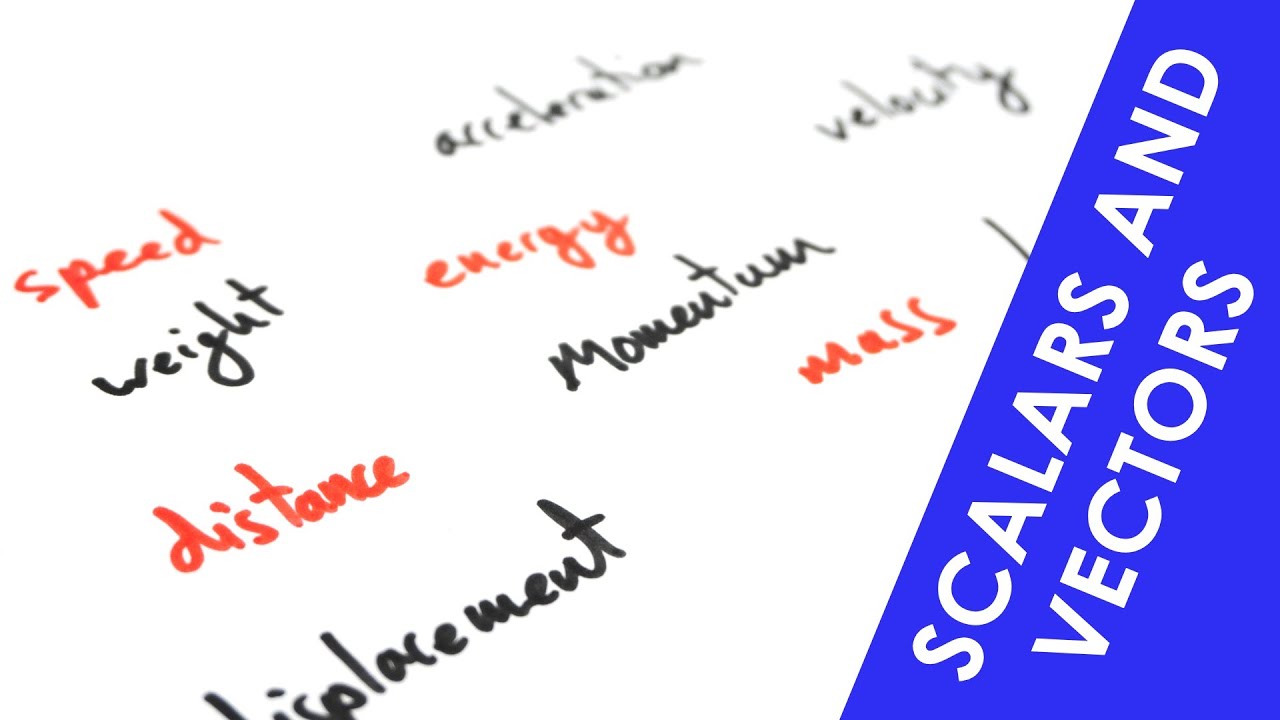 acceleration
velocity
speed
energy
weight
Momentum
mass
distance
displacement
SCALARS AND
VECTORS